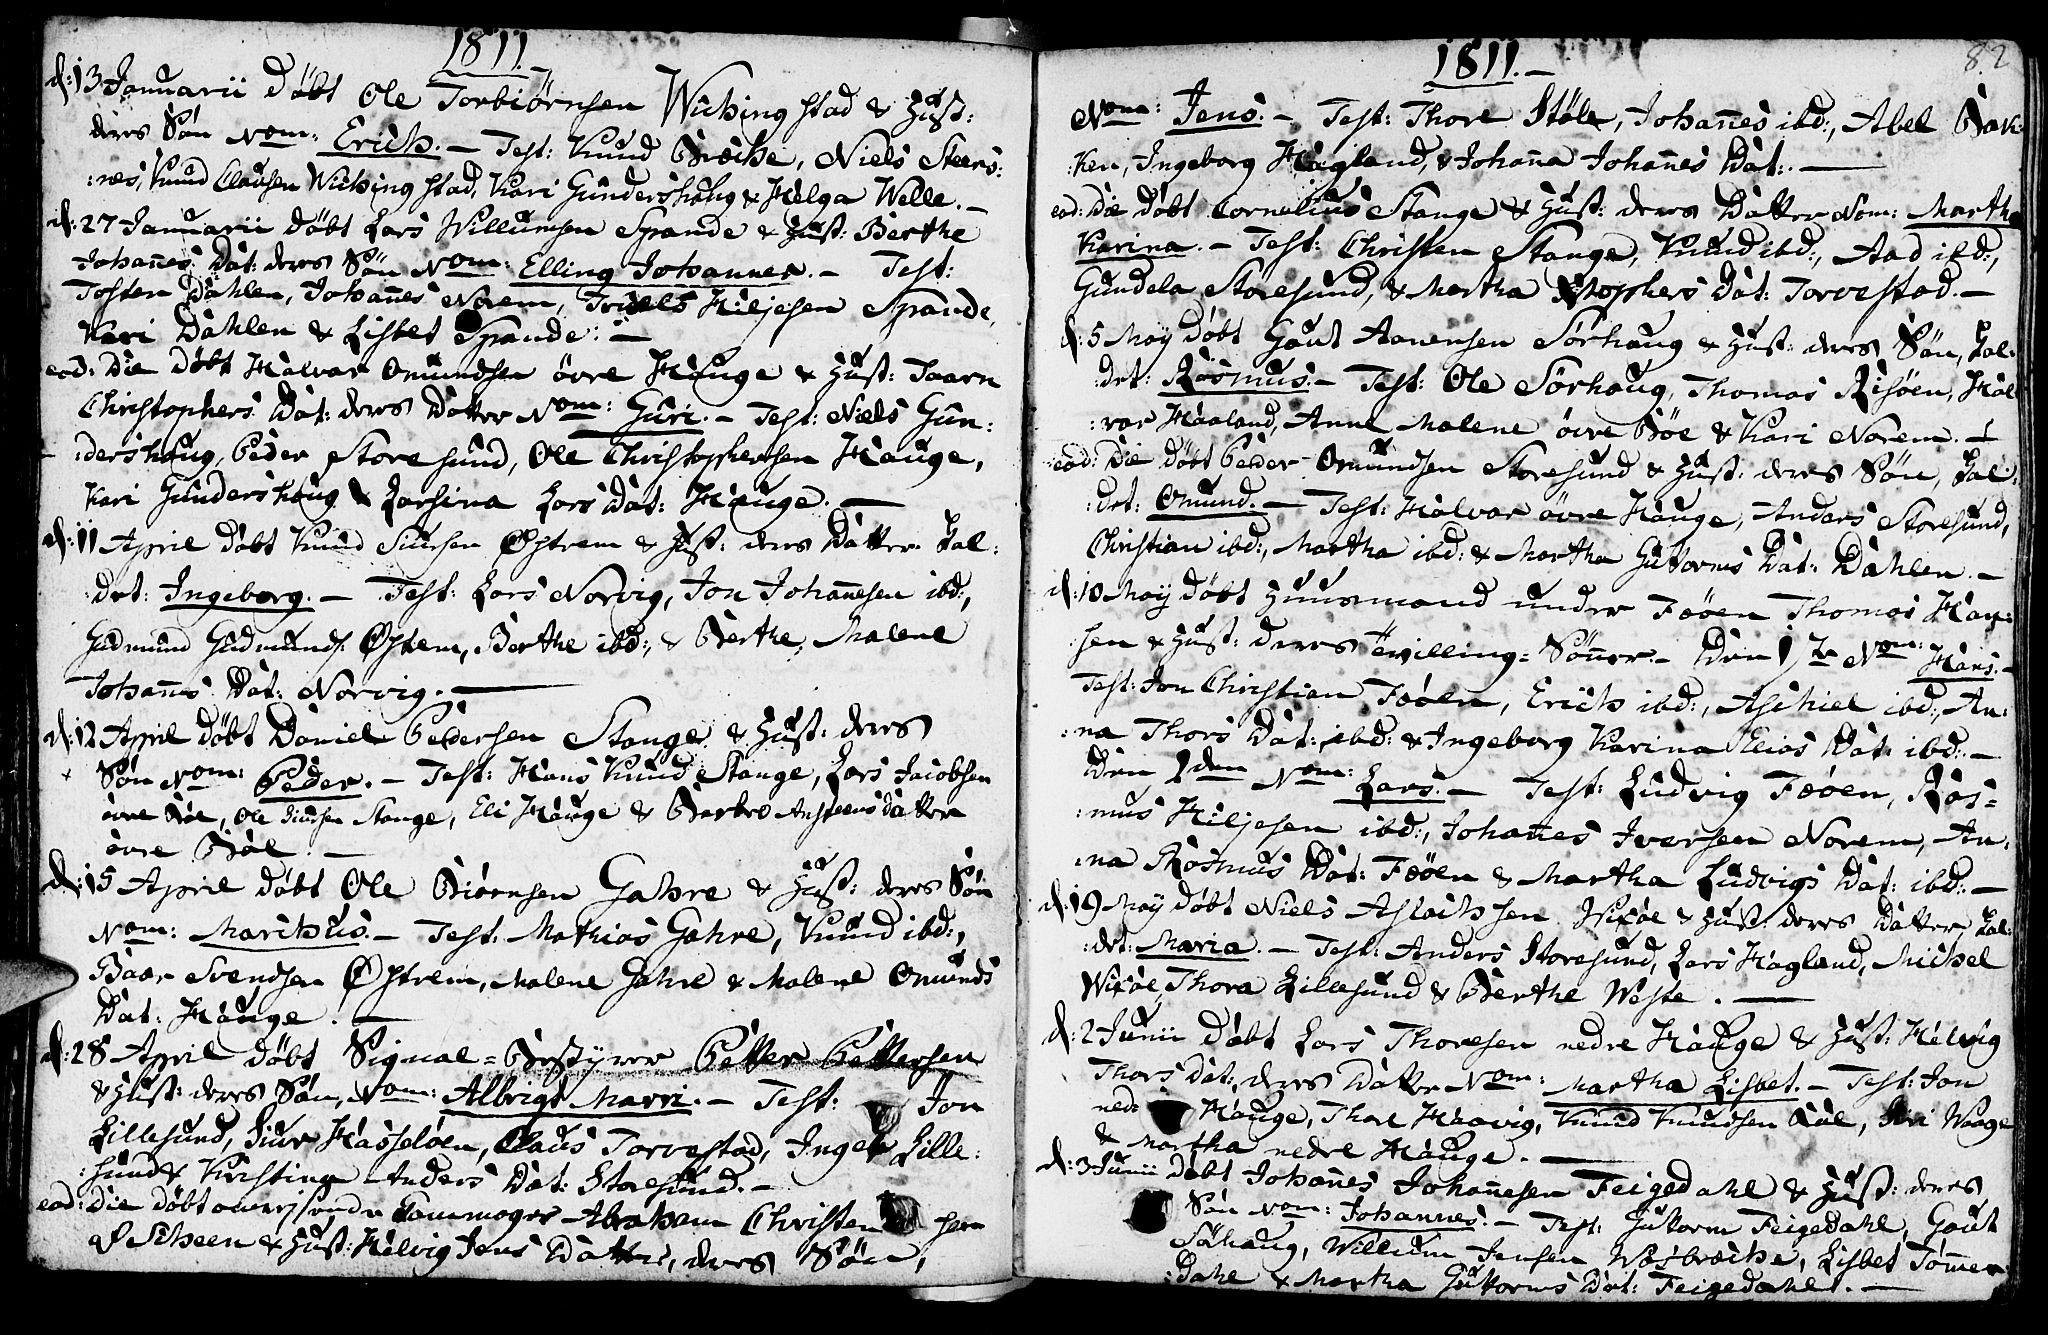 1811.
d: 13 Januarii döbt Ole Torbiörnsen Wichingstad & Hust:
deres Sön Nom: Erich. — Test: Knud Bræche, Niels Steens:
:næs, Knud Clausen Wichingstad, Kari Gundershaug & Helga Welle. —
d: 27 Januarii döbt Lars Willumsen Spande & Hust: Berthe
Johañes Dat: deres Sön Nom: Elling Johannes. — Test:
Tosten Dahlen, Johañes Norem, Troels Kiljesen Spande,
Kari Dahlen & Lisbet Spande: —
eod: Die döbt Halvar Omundsen övre Hauge & Hust: Taarn
Christophers Dat: deres Datter Nom: Guri. — Test: Niels Gun:
:dershaug, Peder Storesund, Ole Christophersen Hauge,
Kari Gundershaug & Larsina Lars Dat: Hauge. —
d: 11 April döbt Knud Siursen Østrem & Hust: deres Datter kal:
:det: Ingeborg. — Test: Lars Norvig, Jon Johañesen ibd:,
Gudmund Gudmunds: Østem, Berthe ibd:, & Berthe Malene
Johañes Dat: Norvig. —
d: 12 April döbt Daniel Pedersen Stange & Hust: deres
Sön Nom: Peder. — Test: Hans Knud Stange, Lars Jacobsen
övre Böe, Ole Siursen Stange, Eli Hauge & Barbro Ansteens Datter
övre Böe. —
d: 15 April döbt Ole Biörnsen Gahre & Hust: deres Sön
Nom: Marchus. — Test: Mathias Gahre, Knud ibd:,
Baar Svendsen Østrem, Malene Gahre & Malene Omunds
Dat: Hauge. —
d: 28 April döbt Signal-Bestyrer Petter Pettersen
& Hust: deres Sön, Nom: Albrigt Marri. — Test: Jon
Lillesund, Siur Hasseløen, Claus Torvestad, Inger Lille:
:sund & Kirstina Anders Dat: Storesund. —
eod: Die döbt omreisende Tommager Abraham Christensen
& Hust: Helvig Jens Datter, deres Sön,
1811. —
82
Nom: Jens. — Test: Thore Stöle, Johañes ibd:, Abel Bak:
:ken, Ingeborg Hagland, & Johaña Johañes Dat: —
eod: Die döbt Cornelius Stange & Hust: deres Datter Nom: Martha
Karina. — Test: Christen Stange, Knud ibd:, Aad ibd:,
Gundela Storesund, & Martha Stophers Dat: Torvestad. —
d: 5 Maÿ döbt Gaut Aanensen Sörhaug & Hust: deres Sön, kal:
:det: Rasmus. — Test: Ole Sörhaug, Thomas Risöen, Hal:
:var Haaland, Anne Malene övre Böe & Kari Norem. —
eod: Die döbt Peder Omundsen Storesund & Hust: deres Sön, kal:
:det: Omund. — Test: Halvar övre Hauge, Anders Storesund,
Christian ibd:, Martha ibd: & Martha Guttorms Dat: Dahlen. —
d: 10 Maÿ döbt Huusmand under Føöen Thomas Han:
:sen & Hust: deres Tvilling-Sönner. — Den 1ste Nom: Hans. —
Test: Jon Christian Føöen, Erich ibd:, Aschiel ibd:, An:
:na Thors Dat: ibd: & Ingeborg Karina Elias Dat: ibd: —
Den 2den Nom: Lars. — Test: Ludvig Føöen, Ras:
:mus Kiljesen ibd:, Johañes Iversen Norem, An:
:na Rasmus Dat: Føöen & Martha Ludvigs Dat: ibd: —
d: 19 Maÿ döbt Niels Aslachsen Wixöe & Hust: deres Datter, kal:
:det: Maria. — Test: Anders Storesund, Lars Hagland, Michel
Wixöe, Thora Lillesund & Berthe Weste. —
d: 2 Junii döbt Lars Thoresen nedre Hauge & Hust: Helvig
Thors Dat: deres Datter Nom: Martha Lisbet. — Test: Jon
nedre Hauge, Thore Haavig, Knud Knudsen Böe, Siri Waage
& Martha nedre Hauge. —
d: 3 Junii döbt Johañes Johañesen Feigedahl & Hust: deres
Sön Nom: Johannes. — Test: Guttorm Feigedahl, Gaut
Söhaug, Willum Jensen Wasbreche, Lisbet Tömmer:
:dahl & Martha Guttorms Dat: Feigedahl. —